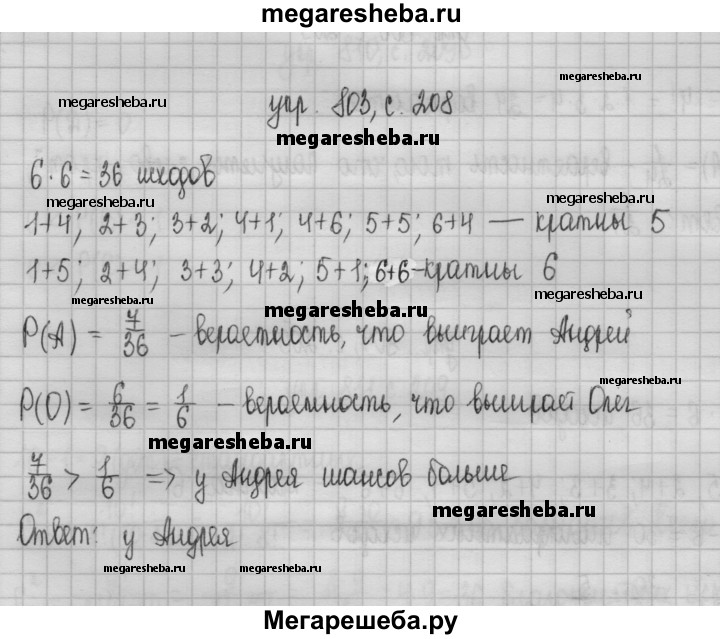 megaresheba.ru
megaresheba.ru
megaresheba.ru
упр. 803, с. 208
megaresheba.ru
6·6 = 36 исходов
megaresheba.ru
1+4; 2+3; 3+2; 4+1; 4+6; 5+5; 6+4 — кратны 5
1+5; 2+4; 3+3; 4+2; 5+1; 6+6 - кратны 6
megaresheba.ru
megaresheba.ru
megaresheba.ru
P(A) = 7/36 - вероятность, что выиграет Андрей
megaresheba.ru
P(O) = 6/36 = 1/6 - вероятность, что выиграет Олег
megaresheba.ru
7/36 > 1/6 => у Андрея шансов больше
megaresheba.ru
Ответ: у Андрея
megaresheba.ru
megaresheba.ru
Мегарешеба.ру